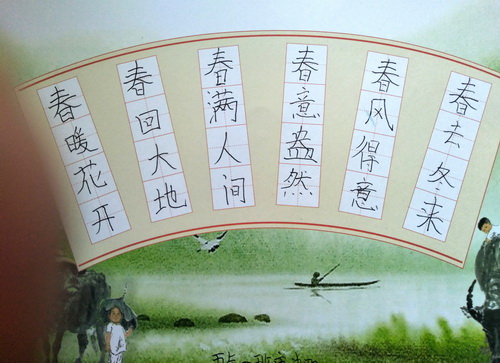 春暖花开
春回大地
春满人间
春意盎然
春风得意
春去冬来